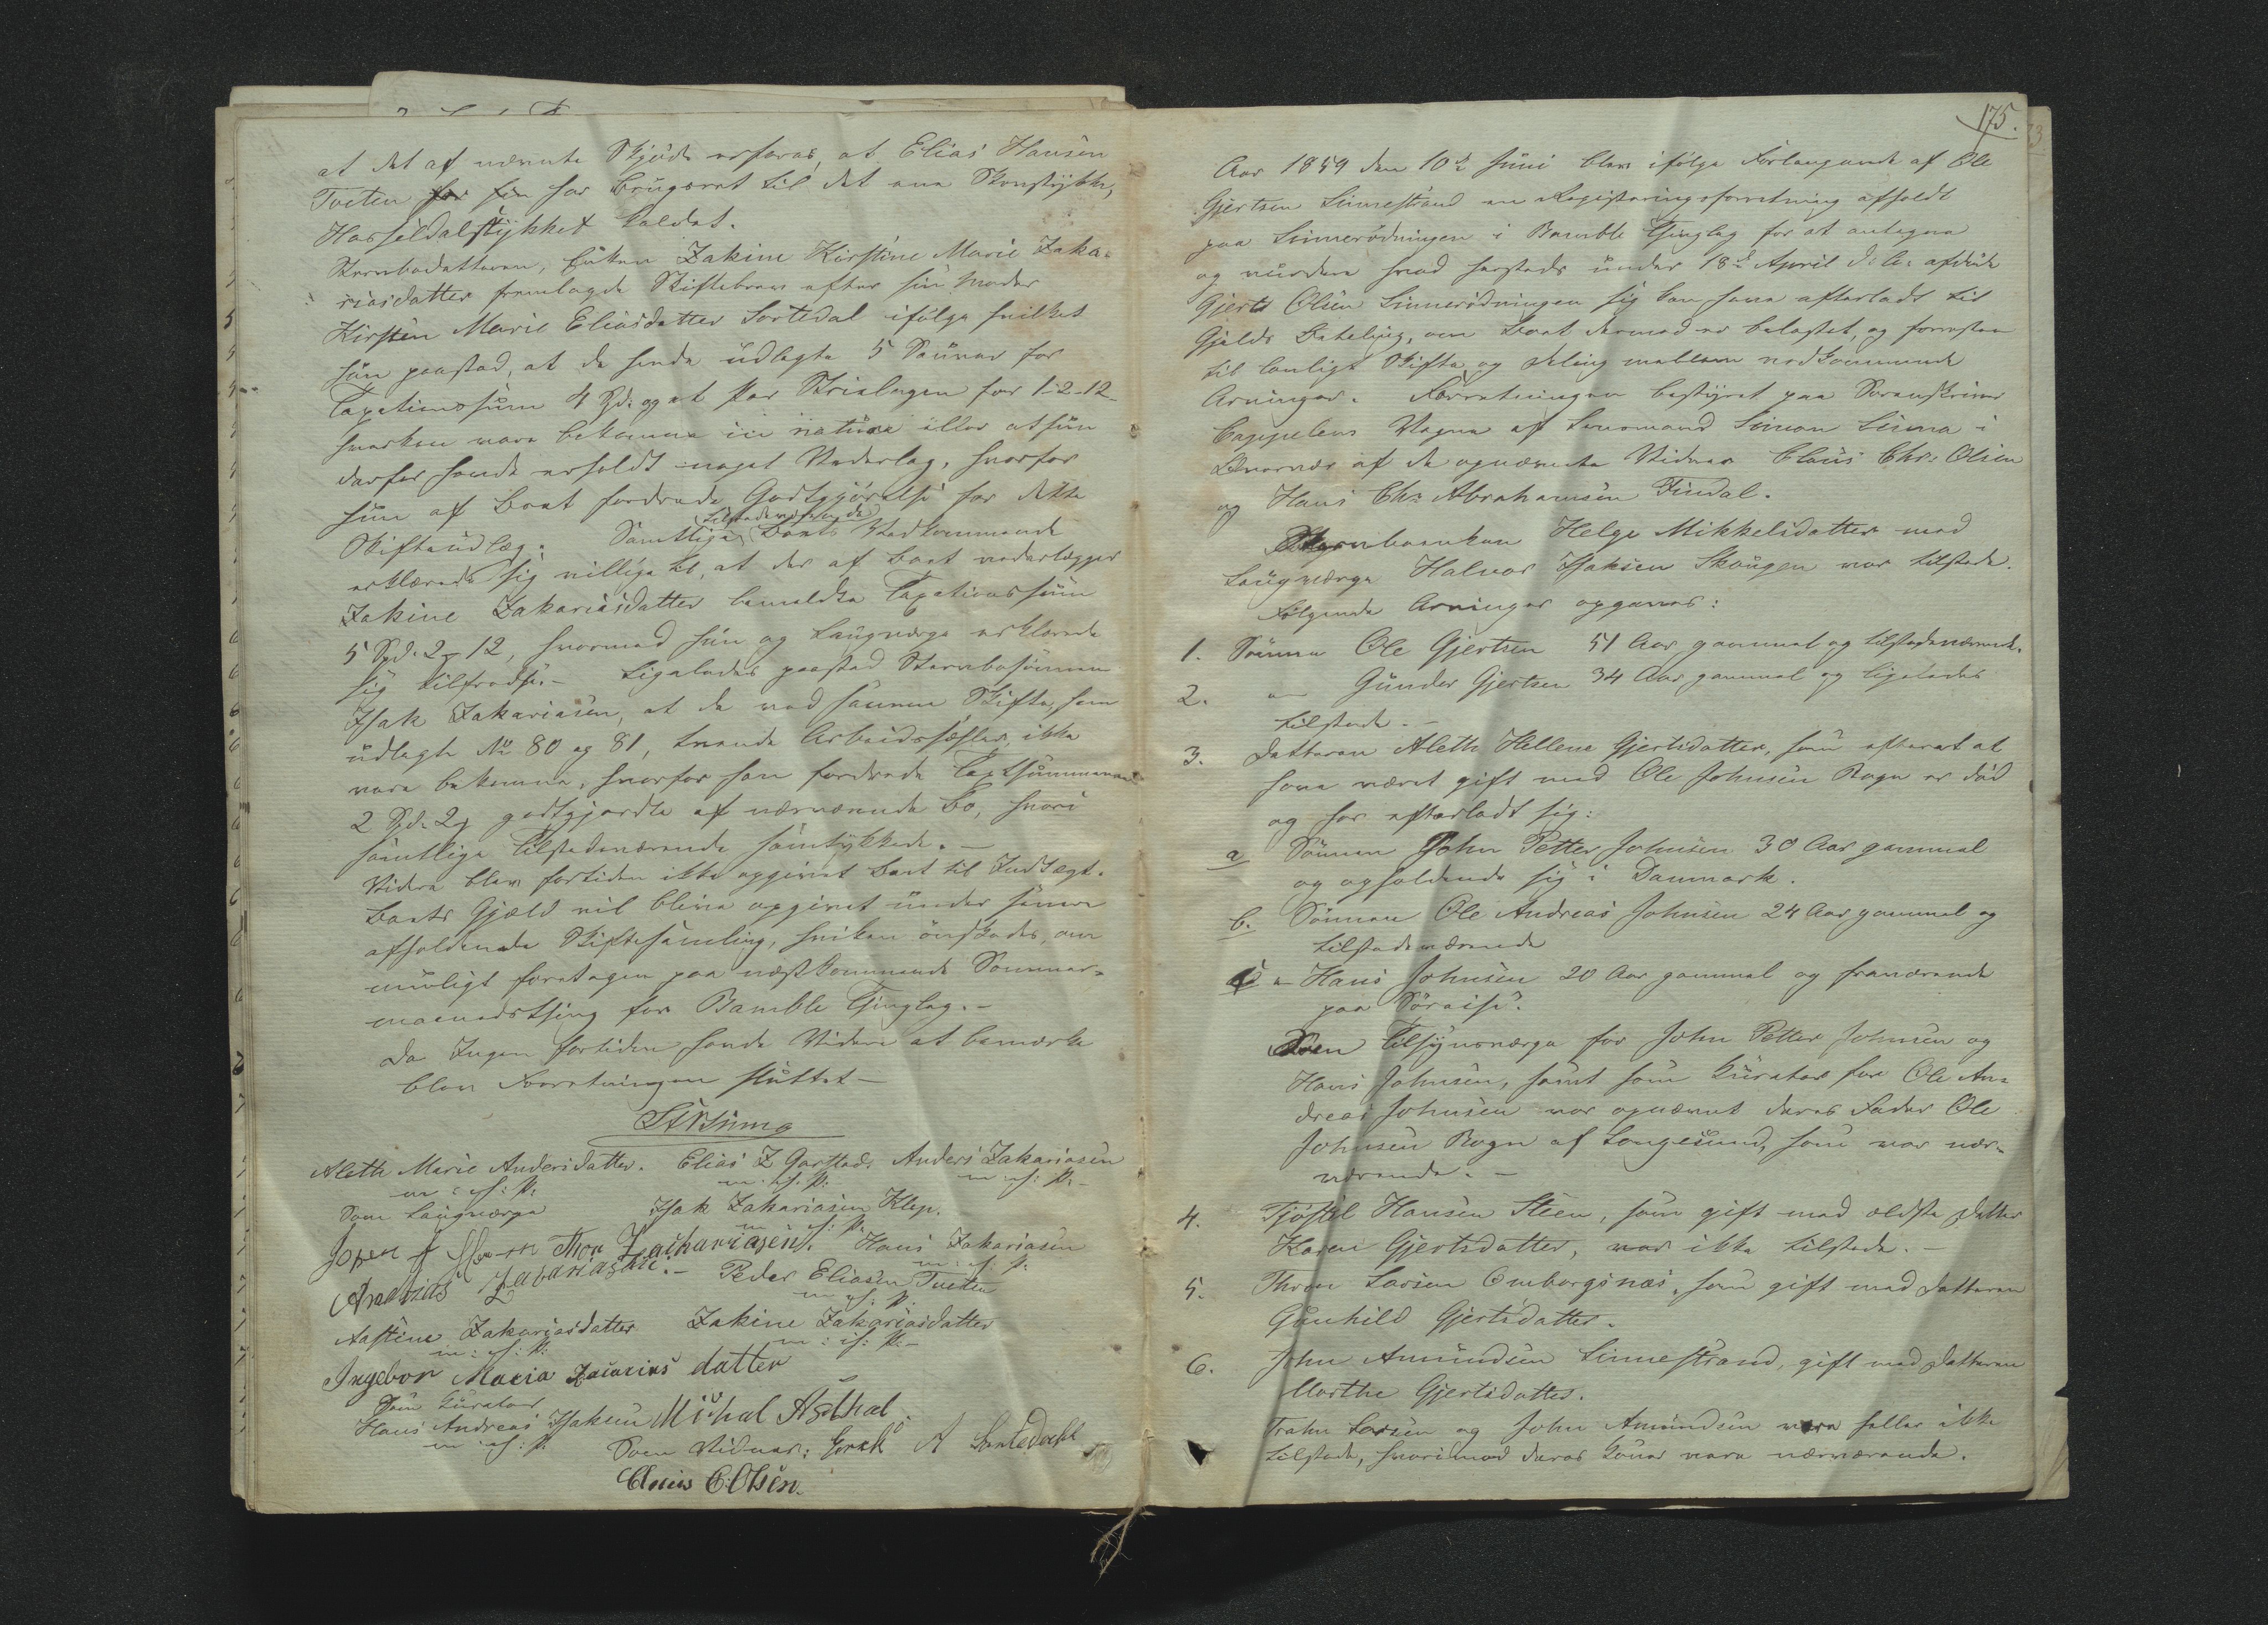 at det af nævnte Skjøde erfares, at Elias Hansen
Tveten har Brugsret til det ene Skovstykke,
Hasseldalstykket kaldet.
Stervbodatteren, Enken Zakine Kirstine Marie Zaka-
riasdatter fremlagde Skiftebrev efter sin Moder
Kirsten Marie Eliasdatter Sortedal ifølge hvilket
hun paastod, at de hende udlagte 5 Sauer for
Taxationssum 4 Spd. og et par for 1-2-12
hverken vare bekomne in natura eller at hun
derfor havde erholdt noget Vederlag, hvorfor
hun af Boet fordrede Godtgjørelse for dette
Skifteudlæg. Samtlige tilstedeværende Boets Vedkommende
erklærede sig villige til, at der af Boet vederlægges
Zakine Zakariasdatter bemeldte Taxationssum
5 Spd. 2 12, hvormed hun og Laugværge erklærede
sig tilfreds. - Ligeledes paastod Stervbosønnen
Isak Zakariasen, at de ved samme Skifte ham
udlagte No 80 og 81, tvende Arbeidshæster, ikke
vare bekomne, hvorfor han fordrede Taxtsummen
2 Spd. 2 godtgjordte af nærværende Bo, hvori
samtlige Tilstedeværende samtykkede. -
Videre blev fortiden ikke opgivet Boet til Indtægt.
Boets Gjæld vil blive opgivet under senere
afholdende Skiftesamling, hvilken ønskedes, om
muligt foretagen paa næstkommende Sommer-
maanedsthing for Bamble Thinglag. -
Da Ingen fortiden havde Videre at bemærke
blev Forretningen sluttet -
Aleth Marie Andersdatter. Elias Z Garstads Anders Zakariasen
m: f: P: m: f: P: m: f: P: -
Som Laugværge Isak Zakariasen Klep.
m: f: P:
Thor Zachariasen. Hans Zakariasen
m: f: P:
Zakariasen. - Peder Eliasen Tveten
m: f: P:
Aastine Zakariasdatter Zakine Zakariasdatter
m: f: P: m: f: P: -
Ingebor Maria Zacarias datter
Som Kurator
Hans Andreas Isaksen Michal Asthal
m: f: P: Som Vidner:
Claus C. Olsen.
175.
Aar 1859 den 10de Juni blev ifølge Forlangende af Ole
Gjertsen Linnestrand en Registeringsforretning afholdt
paa Linnerødningen i Bamble Thinglag for at antegne
og vurdere hvad hersteds under 18de April d: A: afdøde
Gjert Olsen Linnerødningen sig kan have efterladt til
Gjælds Betaling, om Boet dermed er belastet, og forresten
til lovligt Skifte og Deling mellem vedkommende
Arvinger. Forretningen bestyret paa Sorenskriver
Cappelens Vegne af Lensmand Simon
og de opnævnte Vidner Claus Chr. Olsen
og Hans Chr. Abrahamsen Findal.
Stervboenken Helge Mikkelsdatter med
Laugværge Halvor Isaksen Skougen var tilstede.
Følgende Arvinger opgaves:
1. Sønnen Ole Gjertsen 51 Aar gammel og tilstedeværende.
2. " Gunder Gjertsen 34 Aar gammel og ligeledes
tilstede. -
3. Datteren Aleth Hellene Gjertsdatter, som efterat at
have været gift med Ole Johnsen Rogn er død
og har efterladt sig:
a Sønnen John Petter Johnsen 30 Aar gammel
og opholdende sig i Danmark.
b. Sønnen Ole Andreas Johnsen 24 Aar gammel og
tilstedeværende
c " Hans Johnsen 20 Aar gammel og fraværende
paa Søreise.
Som Tilsynsværge for John Petter Johnsen og
Hans Johnsen, samt som Kurator for Ole An-
dreas Johnsen var opnævnt deres Fader Ole
Johnsen Rogn af Langesund, som var nær-
værende. -
4. Tjøstel Hansen Steen, som gift med ældste Datter
Karen Gjertsdatter, var ikke tilstede. -
5. Thron Larsen Omborgsnæs, som gift med Datteren
Gunhild Gjertsdatter.
6. John Amundsen Linnestrand, gift med Datteren
Marthe Gjertsdatter.
Larsen og John Amundsen vare heller ikke
tilstede, hvorimod deres Koner vare nærværende.